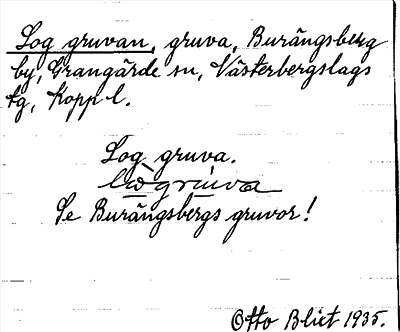 Log gruvan, gruva, Burängsberg
by, Grangärde sn, Västerbergslags
tg, Kopp l.
Log gruva.
gruva
Se Burängsbergs gruvor!
Otto Blixt 1935.